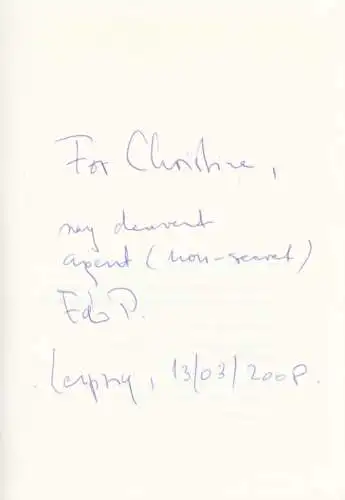 For Christine,
my dearest
agent (non-secret)
Edo P.
Leipzig, 13/03/2008.